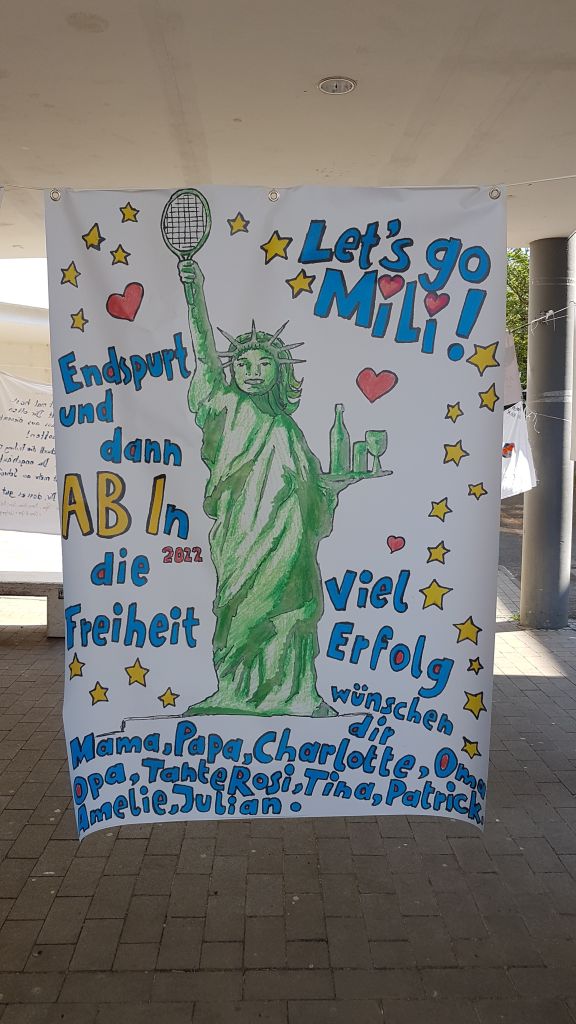 Let's go
Mili!
Endspurt
und
dann
AB In
2022
die
Freiheit
Viel
Erfolg
wünschen
dir
Mama, Papa, Charlotte, Oma
Opa, Tante Rosi, Tina, Patrick,
Amelie, Julian.